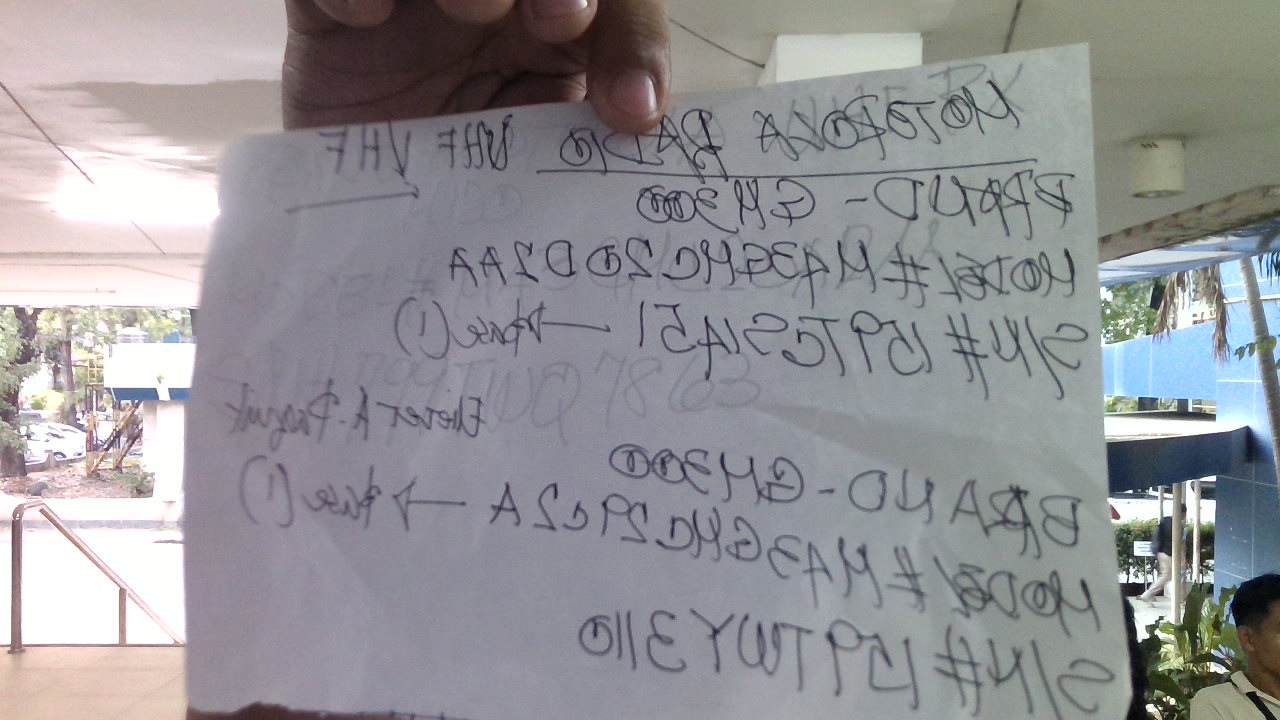 MOTOROLA RADIO VHF VHF
BRAND - GM300
MODEL # M43GMC20D2AA
S/N # 159TCS1451 → base (1)
BRAND - GM300
MODEL # M43GMC29C2A → base (1)
S/N # 159TWY3110